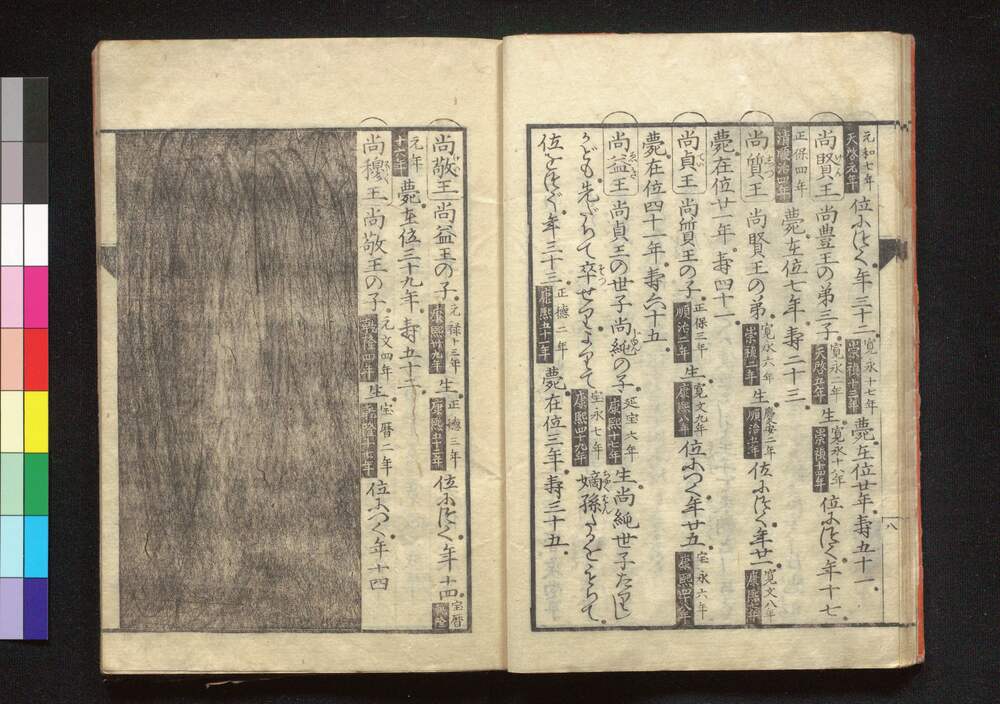 元和七年 天啓元年 位につく年三十二 寛永十七年 崇禎十三年 薨在位廿年壽五十一
尚賢王 尚豊王の弟三子 寛永二年 天啓五年 生 寛永十八年 崇禎十四年 位につく年十七
正保四年 清順治四年 薨在位七年壽二十三
尚質王 尚賢王の弟 寛永六年 崇禎二年 生 慶安二年 順治六年 位につく年廿一 寛文八年 康熙七年
薨在位廿一年壽四十一
尚貞王 尚質王の子 正保三年 順治二年 生 寛文九年 康熙八年 位につく年廿五 宝永六年 康熙四十八年
薨在位四十一年壽六十五
尚益王 尚貞王の世子尚純の子 延宝六年 康熙十七年 生尚純世子たりし
かども先だちて卒せりよりて 宝永七年 康熙四十九年 嫡孫たるをもちて
位をつぐ年三十三 正徳二年 康熙五十一年 薨在位三年壽三十五
八
尚敬王 尚益王の子 元禄十三年 康熙卅九年 生 正徳三年 康熙五十二年 位につく年十四 宝暦 乾隆
元年 十六年 薨在位三十九年壽五十二
尚穆王 尚敬王の子 元文四年 乾隆四年 生 宝暦二年 乾隆十七年 位につく年十四